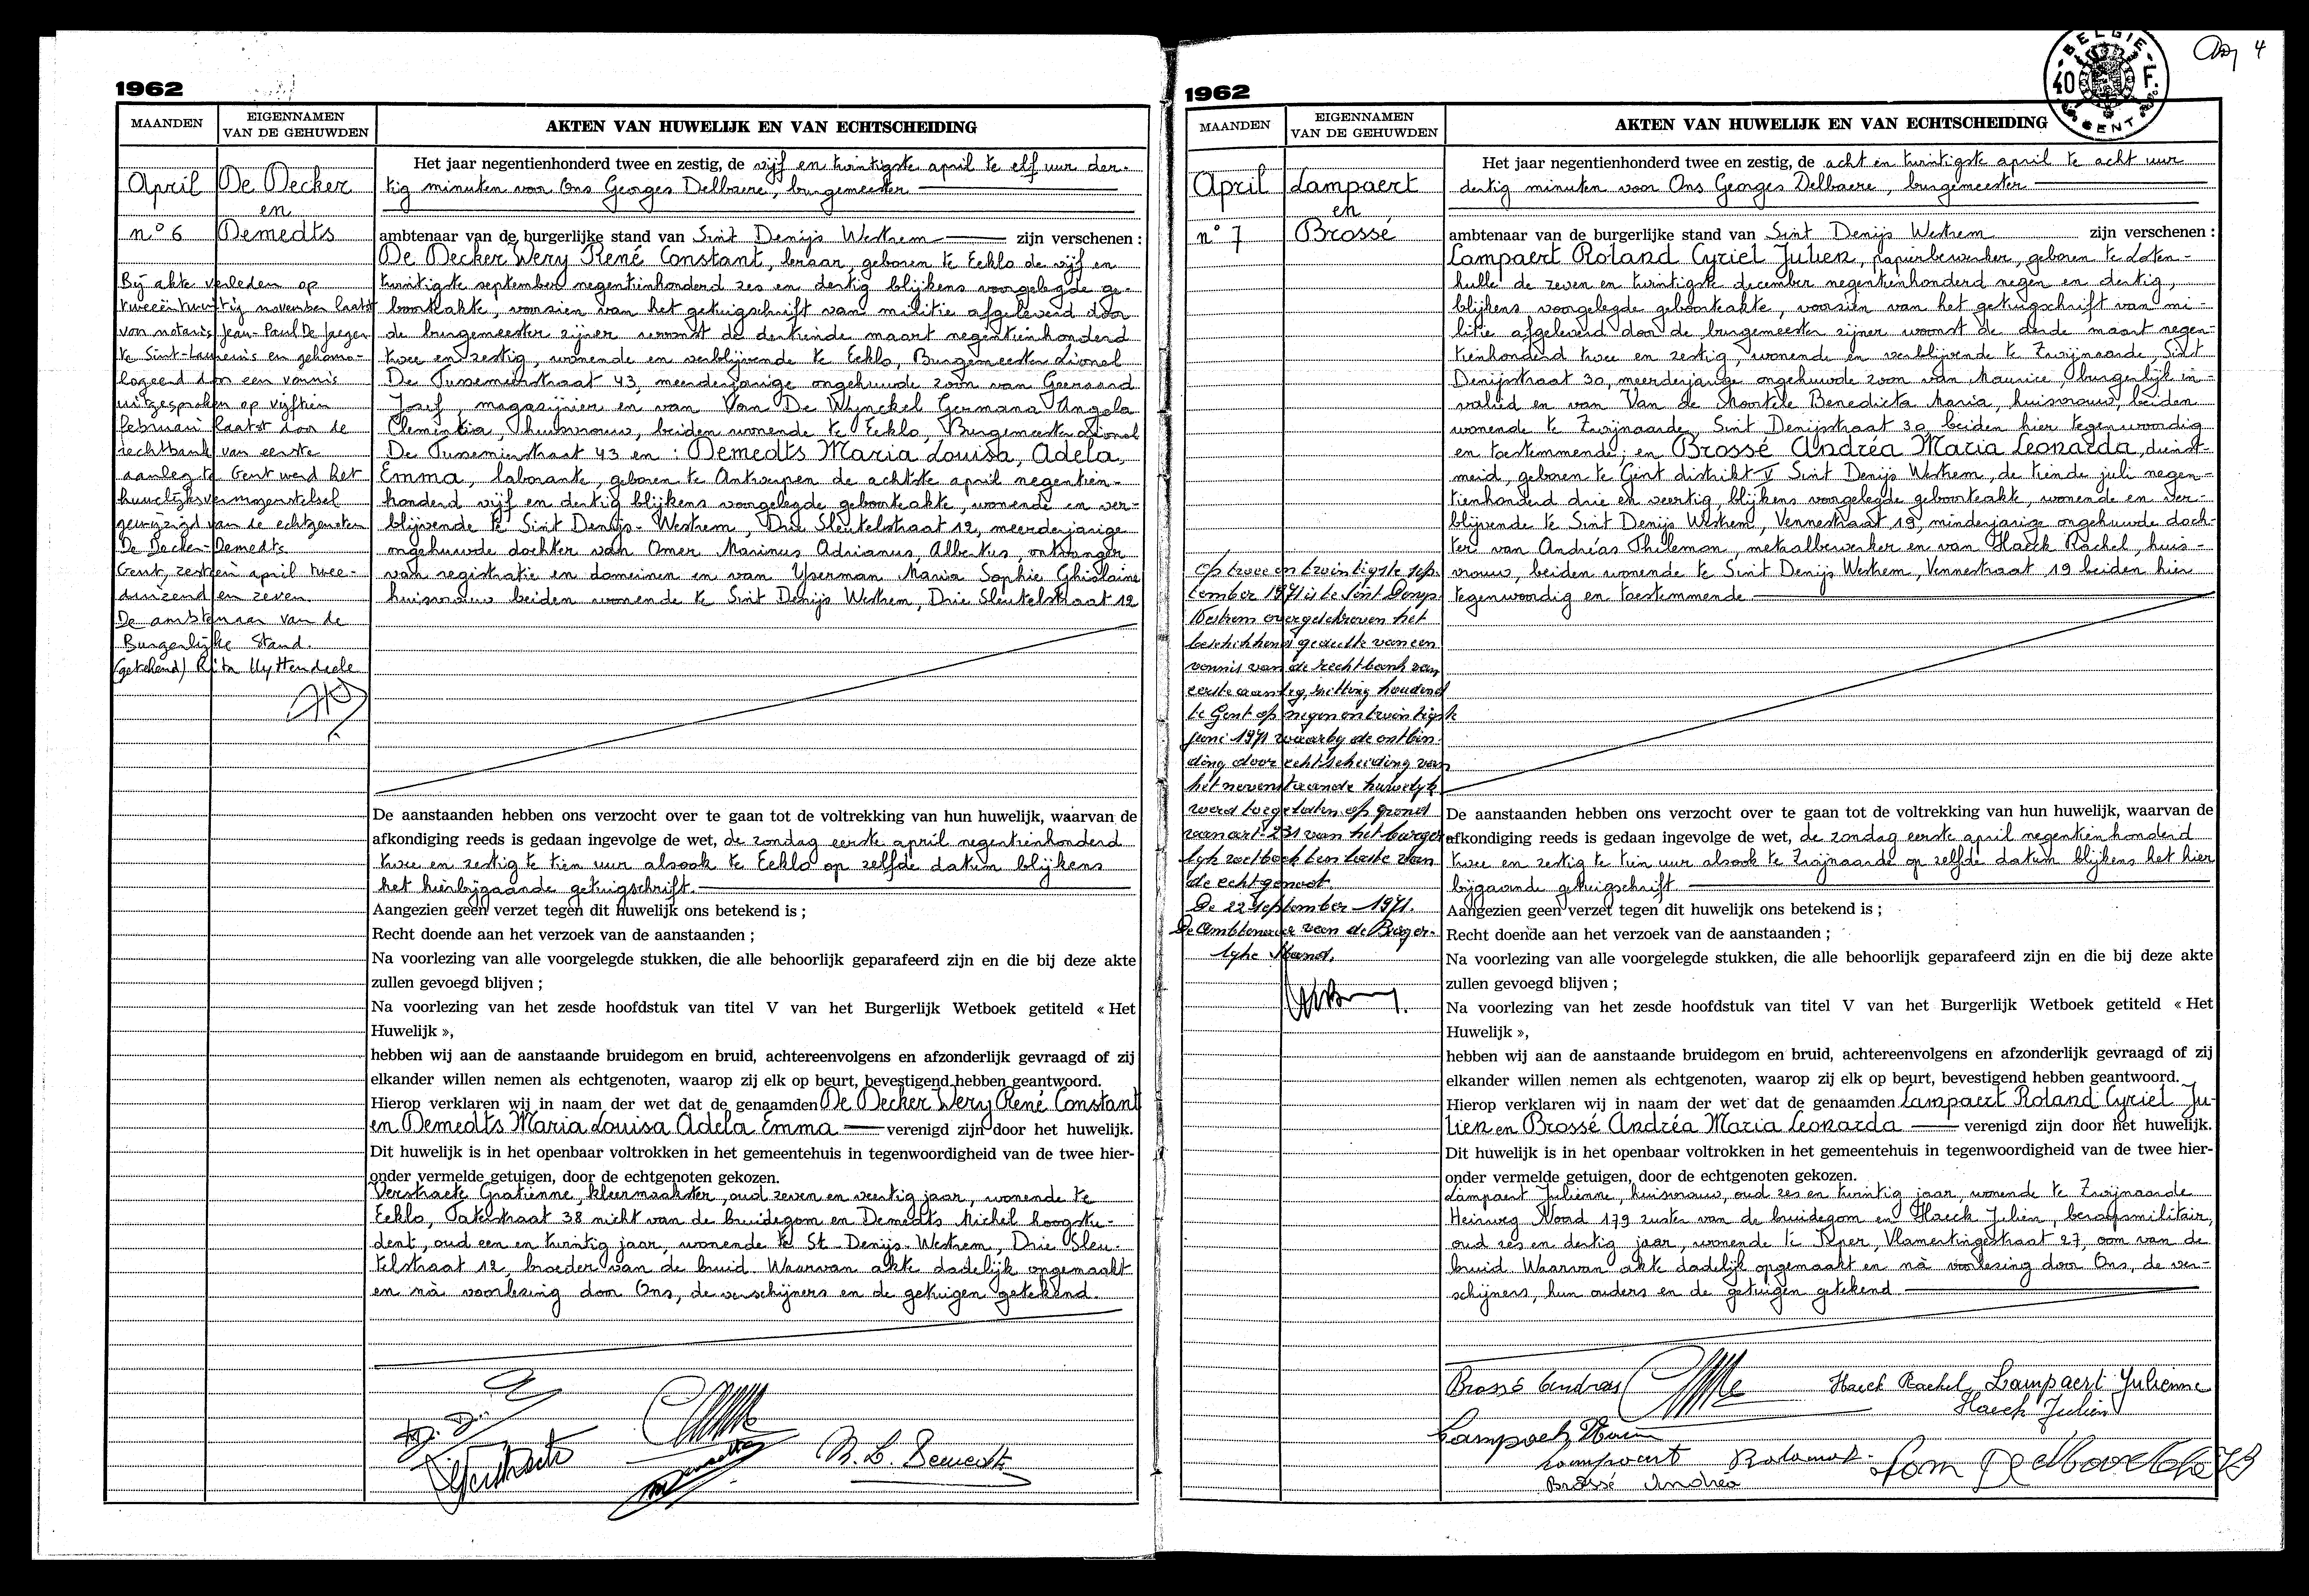 1962
MAANDEN
EIGENNAMEN
VAN DE GEHUWDEN
AKTEN VAN HUWELIJK EN VAN ECHTSCHEIDING
April
De Decker
en
n.º 6
Demedts
Bij akte verleden op
tweeëntwintig november laatst
van notaris Jean-Paul De Jaeger
te Sint-Laureins en gehomo-
logeerd door een vonnis
uitgesproken op vijftien
februari laatst door de
rechtbank van eerste
aanleg te Gent werd het
huwelijksvermogenstelsel
gewijzigd van de echtgenoten
De Decker-Demedts
Gent, zestien april twee-
duizend en zeven.
De ambtenaar van de
Burgerlijke Stand.
(getekend) Rita Uyttendaele
Het jaar negentienhonderd twee en zestig, de vijf en twintigste april te elf uur der-
tig minuten voor Ons Georges Delbaere, burgemeester
ambtenaar van de burgerlijke stand van Sint Denijs Westrem zijn verschenen :
De Decker Wery René Constant, leraar, geboren te Eeklo de vijf en
twintigste september negentienhonderd zes en dertig blijkens voorgelegde ge-
boorteakte, voorzien van het getuigschrift van militie afgeleverd door
de burgemeester zijner woonst de dertiende maart negentienhonderd
twee en zestig, wonende en verblijvende te Eeklo, Burgemeester Lionel
De Pussemierstraat 43, meerderjarige ongehuwde zoon van Geeraard
Jozef, magazijnier en van Van De Wynckel Germana Angela
Clementia, huisvrouw, beiden wonende te Eeklo, Burgemeester Lionel
De Pussemierstraat 43 en : Demedts Maria Louisa, Adela,
Emma, laborante, geboren te Antwerpen de achtste april negentien-
honderd vijf en dertig blijkens voorgelegde geboorteakte, wonende en ver-
blijvende te Sint Denijs-Westrem, Drie Sleutelstraat 12, meerderjarige
ongehuwde dochter van Omer Marinus Adrianus, Albertus, ontvanger
van registratie en domeinen en van Yserman Maria Sophie Ghislaine
huisvrouw beiden wonende te Sint Denijs Westrem, Drie Sleutelstraat 12
De aanstaanden hebben ons verzocht over te gaan tot de voltrekking van hun huwelijk, waarvan de
afkondiging reeds is gedaan ingevolge de wet, de zondag eerste april negentienhonderd
twee en zestig te tien uur alsook te Eeklo op zelfde datum blijkens
het hierbijgaande getuigschrift.
Aangezien geen verzet tegen dit huwelijk ons betekend is ;
Recht doende aan het verzoek van de aanstaanden ;
Na voorlezing van alle voorgelegde stukken, die alle behoorlijk geparafeerd zijn en die bij deze akte
zullen gevoegd blijven ;
Na voorlezing van het zesde hoofdstuk van titel V van het Burgerlijk Wetboek getiteld « Het
Huwelijk »,
hebben wij aan de aanstaande bruidegom en bruid, achtereenvolgens en afzonderlijk gevraagd of zij
elkander willen nemen als echtgenoten, waarop zij elk op beurt, bevestigend hebben geantwoord.
Hierop verklaren wij in naam der wet dat de genaamden De Decker Wery René Constant
en Demedts Maria Louisa Adela Emma verenigd zijn door het huwelijk.
Dit huwelijk is in het openbaar voltrokken in het gemeentehuis in tegenwoordigheid van de twee hier-
onder vermelde getuigen, door de echtgenoten gekozen.
Verstraete Gratienne, kleermaakster, oud zeven en veertig jaar, wonende te
Eeklo, Patelstraat 38 nicht van de bruidegom en Demedts Michel hoogstu-
dent, oud een en twintig jaar, wonende te St-Denijs-Westrem, Drie Sleu-
telstraat 12, broeder van de bruid. Waarvan akte dadelijk opgemaakt
en nà voorlezing door Ons, de verschijners en de getuigen getekend.
M. L. Demedts
1962
BELGIE
40 F.
GENT
4
MAANDEN
EIGENNAMEN
VAN DE GEHUWDEN
AKTEN VAN HUWELIJK EN VAN ECHTSCHEIDING
April
Lampaert
en
n° 7
Brossé
Op twee en twintigste sep-
tember 1971 is te Sint Denijs
Westrem overgeschreven het
beschikkend gedeelte van een
vonnis van de rechtbank van
eerste aanleg, zitting houdend
te Gent op negen en twintigste
juni 1971 waarby de ontbin-
ding door echtscheiding van
het nevenstaande huwelyk
werd toegelaten op grond
van art. 231 van het burger-
lyk wetboek ten laste van
de echtgenoot.
De 22 september 1971.
De Ambtenaar van de Burger-
lyke Stand.
Het jaar negentienhonderd twee en zestig, de acht en twintigste april te acht uur
dertig minuten voor Ons Georges Delbaere, burgemeester
ambtenaar van de burgerlijke stand van Sint Denijs Westrem zijn verschenen :
Lampaert Roland Cyriel Julien, papierbewerker, geboren te Loten-
hulle de zeven en twintigste december negentienhonderd negen en dertig,
blijkens voorgelegde geboorteakte, voorzien van het getuigschrift van mi-
litie afgeleverd door de burgemeester zijner woonst de derde maart negen-
tienhonderd twee en zestig, wonende en verblijvende te Zwijnaarde, Sint
Denijsstraat 30, meerderjarige ongehuwde zoon van Maurice, burgerlijk in-
valied en van Van de Moortele Benedicta Maria, huisvrouw, beiden
wonende te Zwijnaarde, Sint Denijsstraat 30 beiden hier tegenwoordig
en toestemmende ; en Brossé Andréa Maria Leonarda, dienst-
meid, geboren te Gent distrikt V Sint Denijs Westrem, de tiende juli negen-
tienhonderd drie en veertig, blijkens voorgelegde geboorteakte, wonende en ver-
blijvende te Sint Denijs Westrem, Vennestraat 19, minderjarige ongehuwde doch-
ter van Andréas Philemon, metaalbewerker en van Haeck Rachel, huis-
vrouw, beiden wonende te Sint Denijs Westrem, Vennestraat 19 beiden hier
tegenwoordig en toestemmende
De aanstaanden hebben ons verzocht over te gaan tot de voltrekking van hun huwelijk, waarvan de
afkondiging reeds is gedaan ingevolge de wet, de zondag eerste april negentienhonderd
twee en zestig te tien uur alsook te Zwijnaarde op zelfde datum blijkens het hier
bijgaande getuigschrift
Aangezien geen verzet tegen dit huwelijk ons betekend is ;
Recht doende aan het verzoek van de aanstaanden ;
Na voorlezing van alle voorgelegde stukken, die alle behoorlijk geparafeerd zijn en die bij deze akte
zullen gevoegd blijven ;
Na voorlezing van het zesde hoofdstuk van titel V van het Burgerlijk Wetboek getiteld « Het
Huwelijk »,
hebben wij aan de aanstaande bruidegom en bruid, achtereenvolgens en afzonderlijk gevraagd of zij
elkander willen nemen als echtgenoten, waarop zij elk op beurt, bevestigend hebben geantwoord.
Hierop verklaren wij in naam der wet dat de genaamden Lampaert Roland Cyriel Ju-
lien en Brossé Andréa Maria Leonarda verenigd zijn door het huwelijk.
Dit huwelijk is in het openbaar voltrokken in het gemeentehuis in tegenwoordigheid van de twee hier-
onder vermelde getuigen, door de echtgenoten gekozen.
Lampaert Julienne, huisvrouw, oud zes en twintig jaar, wonende te Zwijnaarde
Heirweg Noord 179 zuster van de bruidegom en Haeck Julien, beroepsmilitair,
oud zes en dertig jaar, wonende te Ieper, Vlamertingestraat 27, oom van de
bruid. Waarvan akte dadelijk opgemaakt en nà voorlezing door Ons, de ver-
schijners, hun ouders en de getuigen getekend
Brossé Andreas Haeck Rachel Lampaert Julienne
Haeck Julien
Lampaert Roland
Brossé Andréa